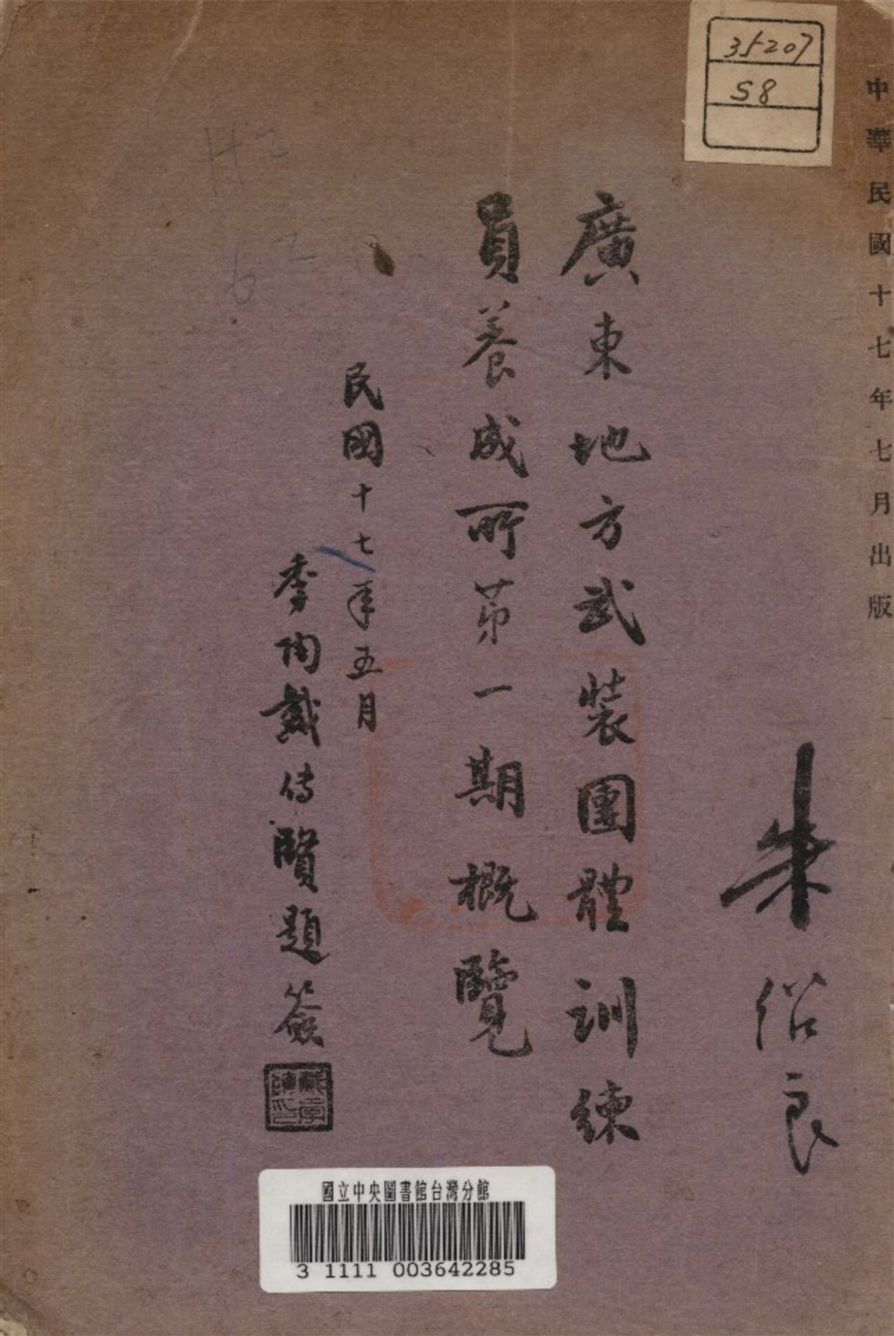 35207
58
中華民國十七年七月出版
朱紹良
廣東地方武裝團體訓練
員養成所第一期概覽
民國十七年五月
季陶戴傳賢題簽
H2
62
國立中央圖書館台灣分館
3 1111 003642285